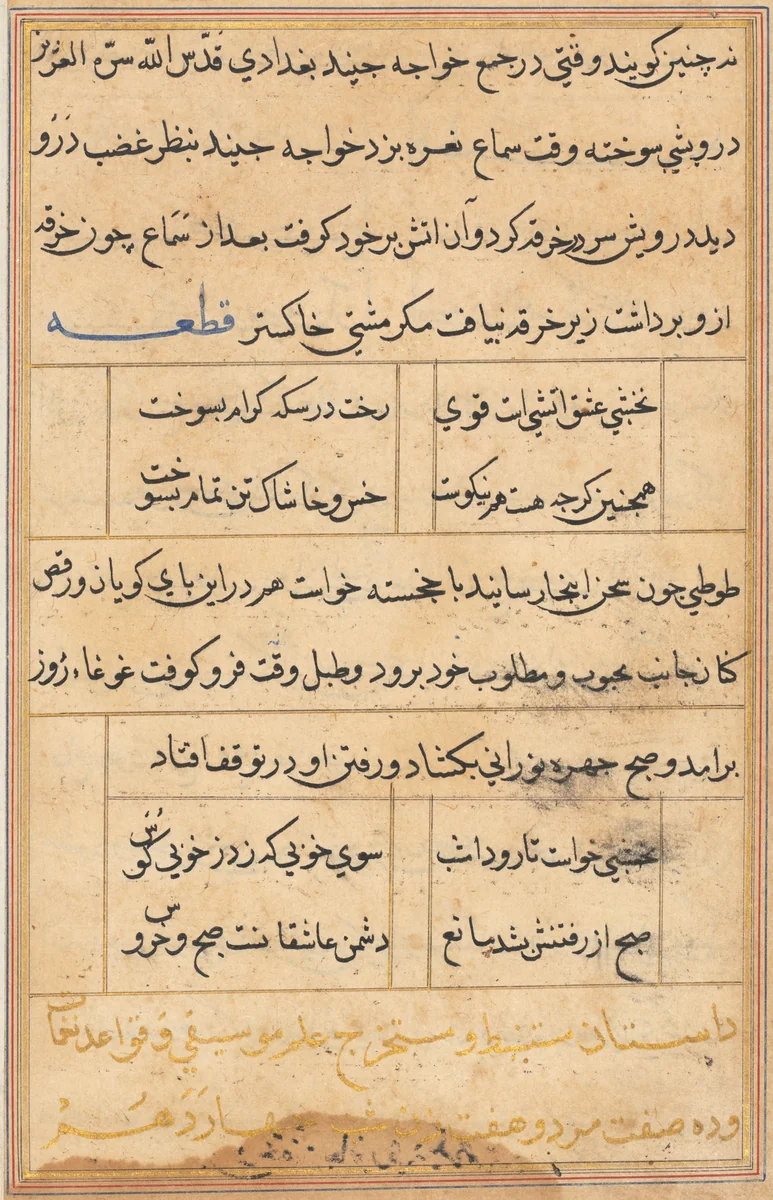 ند چنین کویند وقتی در جمع خواجه جنید بغدادي قدّس الله سرّه العزیز
درویشي سوخته وقت سماع نعره بزد خواجه جنید بنظر غضب درو
دید درویش سر در خرقه کرد وآن اتش بر خود کرفت بعد از سَمَاع چون خرقه
ازو برداشت زیر خرقه نیافت مکر مشتي خاکستر قطعه
نخشبي عشق اتشي است قوي رخت در سکه کرام بسوخت
همچنین کرچه هست هم نیکوست خس و خاشاک تن تمام بسوخت
طوطي چون سخن اینجا رسانید با خجسته خواست هم در این پاي کویان ورقص
کنان جانب محبوب و مطلوب خود برود وطبل وقت فرو کوفت غوغاء روز
برامد وصبح چهره نوراني بکشاد ورفتن او در توقف افتاد
نخشبي خواست تا رود امشب سوي خوبي که زد ز خوبي کوُس
صبح از رفتنش بشد مانع دشمن عاشقانست صبح وخروس
داستان مستنبط و مستخرج علم موسیقي و قواعد نغمات
وده صفت مرد و هفت زن شب چهاردهم